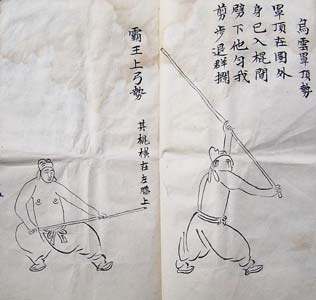 烏雲罩頂勢
罩頂在圈外
身已入棍間
劈下他勻我
剪步退群攔
霸王上弓勢
其棍横在左膝上